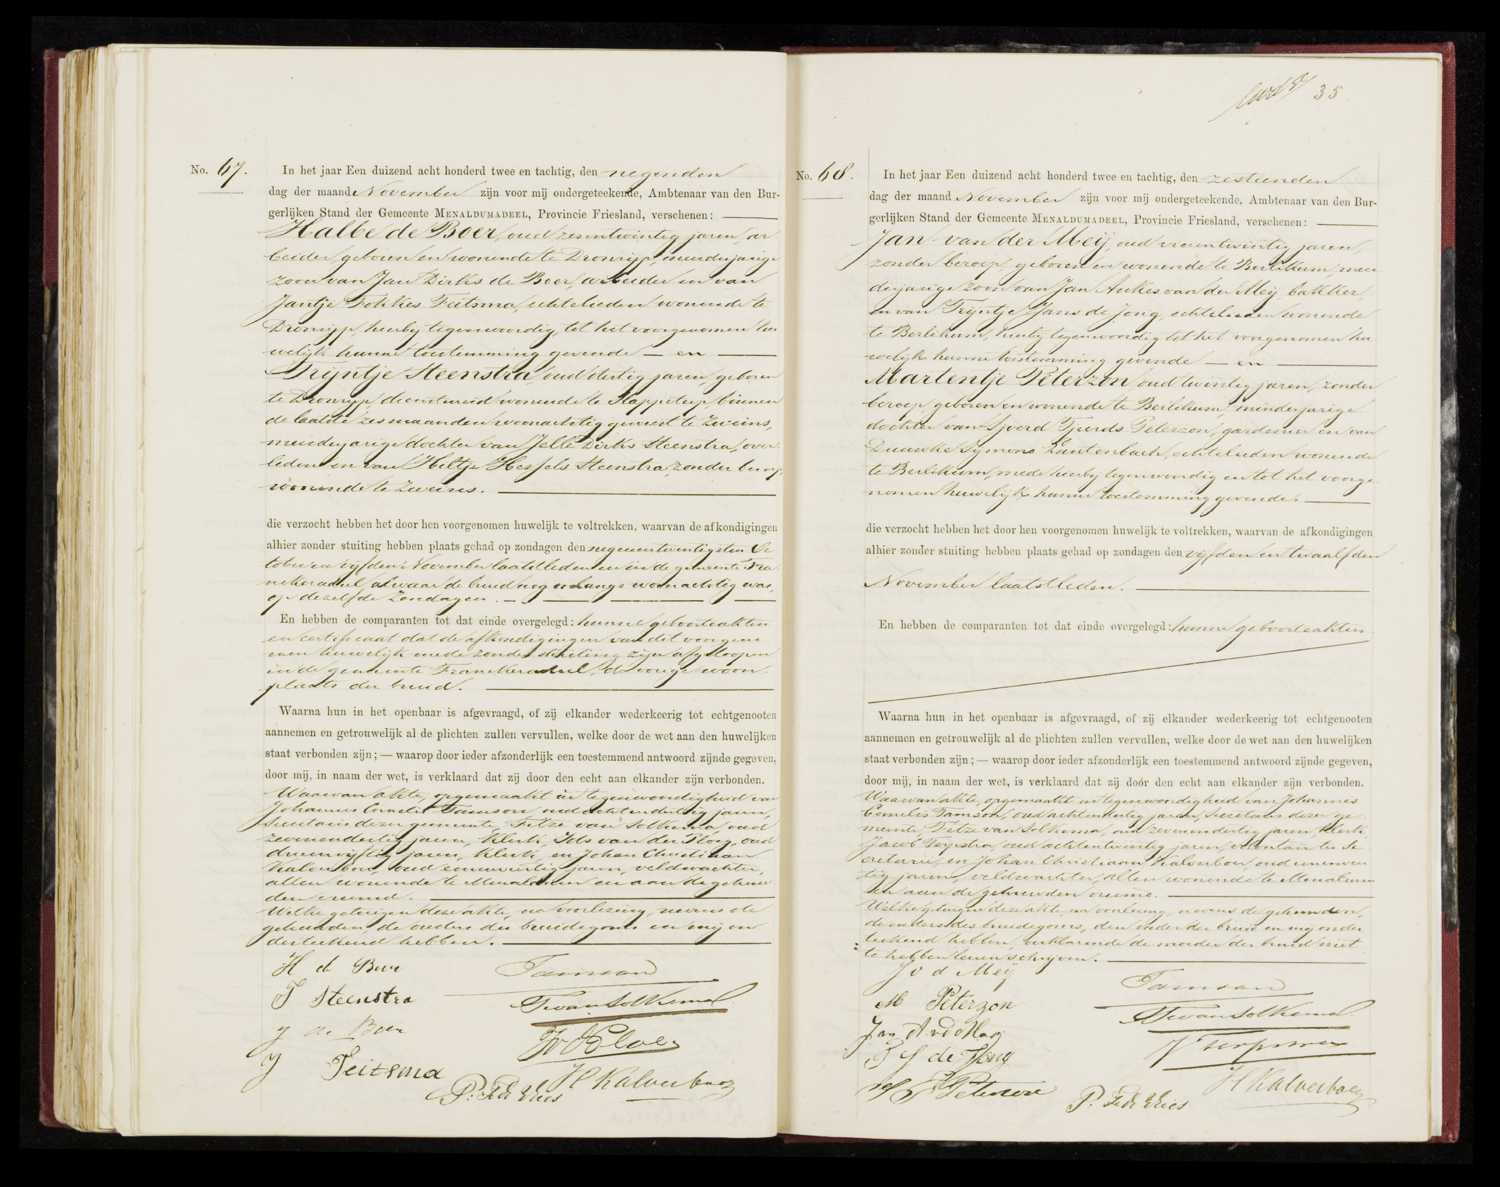 No. 67.
In het jaar Een duizend acht honderd twee en tachtig, den negenden
dag der maand November zijn voor mij ondergeteekende, Ambtenaar van den Bur-
gerlijken Stand der Gemeente MENALDUMADEEL, Provincie Friesland, verschenen:
Halbe de Boer, oud zesentwintig jaren, ar
beider, geboren en wonende te Dronrijp, meerderjarige
zoon van Jan Dirks de Boer, arbeider en van
Jantje Fokkes Feitsma, echtelieden wonende te
Dronrijp, hierbij tegenwoordig tot het voorgenomen hu
welijk hunne toestemming gevende — en
Trijntje Steenstra oud dertig jaren, geboren
te Dronrijp, dienstmeid wonende te Slappeterp, binnen
de laatste zes maanden woonachtig geweest te Zweins,
meerderjarige dochter van Jelle Dirks Steenstra, over
leden en van Hiltje Hessels Steenstra, zonder beroep
wonende te Zweins.
die verzocht hebben het door hen voorgenomen huwelijk te voltrekken, waarvan de afkondigingen
alhier zonder stuiting hebben plaats gehad op zondagen den negenentwintigsten Oc
tober en vijfden November laatstleden en in de gemeente Fra
nekeradeel alwaar de bruid nog onlangs woonachtig was,
op dezelfde zondagen.
En hebben de comparanten tot dat einde overgelegd: hunne geboorteakten
en certificaat dat de afkondigingen van dit voorgeno
men huwelijk mede zonder stuiting zijn afgeloopen
in de gemeente Franekeradeel, de vorige woon
plaats der bruid.
Waarna hun in het openbaar is afgevraagd, of zij elkander wederkeerig tot echtgenooten
aannemen en getrouwelijk al de plichten zullen vervullen, welke door de wet aan den huwelijken
staat verbonden zijn; — waarop door ieder afzonderlijk een toestemmend antwoord zijnde gegeven,
door mij, in naam der wet, is verklaard dat zij door den echt aan elkander zijn verbonden.
Waarvan akte, opgemaakt in tegenwoordigheid van
Johannes Cornelis Tamson, oud achtendertig jaren,
secretaris dezer gemeente, Fetze van Solkema, oud
zevenendertig jaren, klerk, Ids van der Ploeg, oud
drieenvijftig jaren, klerk, en Johan Christiaan
Kalverboer, oud eenenveertig jaren, veldwachter,
allen wonende te Menaldum en aan de gehuw
den vreemd.
Welke getuigen deze akte, na voorlezing, nevens de
gehuwden de ouders des bruidegoms en mij on
derteekend hebben.
H de Boer
T Steenstra
J de Boer
J Feitsma
Tamson
F van Solkema
I v d Ploeg
J C Kalverboer
P. F. de Vries
35
No. 68.
In het jaar Een duizend acht honderd twee en tachtig, den zestienden
dag der maand November zijn voor mij ondergeteekende, Ambtenaar van den Bur-
gerlijken Stand der Gemeente MENALDUMADEEL, Provincie Friesland, verschenen:
Jan van der Meij, oud vierentwintig jaren,
zonder beroep, geboren en wonende te Berlikum, meer
derjarige zoon van Jan Aukes van der Meij, bakker,
en van Trijntje Jans de Jong, echtelieden wonende
te Berlikum, hierbij tegenwoordig tot het voorgenomen hu
welijk hunne toestemming gevende — en
Martentje Peterzon oud twintig jaren, zonder
beroep, geboren en wonende te Berlikum, minderjarige
dochter van Sjoerd Tjeerds Peterzon, gardenier en van
Doutke Symons Lautenbach, echtelieden wonende
te Berlikum, mede hierbij tegenwoordig en tot het voorge
nomen huwelijk hunne toestemming gevende.
die verzocht hebben het door hen voorgenomen huwelijk te voltrekken, waarvan de afkondigingen
alhier zonder stuiting hebben plaats gehad op zondagen den vijfden en twaalfden
November laatstleden.
En hebben de comparanten tot dat einde overgelegd: hunne geboorteakten
Waarna hun in het openbaar is afgevraagd, of zij elkander wederkeerig tot echtgenooten
aannemen en getrouwelijk al de plichten zullen vervullen, welke door de wet aan den huwelijken
staat verbonden zijn; — waarop door ieder afzonderlijk een toestemmend antwoord zijnde gegeven,
door mij, in naam der wet, is verklaard dat zij door den echt aan elkander zijn verbonden.
Waarvan akte, opgemaakt in tegenwoordigheid van Johannes
Cornelis Tamson, oud achtendertig jaren, secretaris dezer ge
meente, Fetze van Solkema, oud zevenendertig jaren, klerk,
Jacob oud achtentwintig jaren, volontair ter se
cretarie, en Johan Christiaan Kalverboer oud eenenveer
tig jaren, veldwachter, allen wonende te Menaldum
en aan de gehuwden vreemd.
Welke getuigen deze akte, na voorlezing, nevens de gehuwden,
de ouders des bruidegoms, den vader der bruid en mij onder
teekend hebben, verklarende de moeder der bruid niet
te hebben leeren schrijven.
J v d Meij
M Peterzon
Jan A v d Meij
T J de Jong
S T Peterzon
Tamson
F van Solkema
J C Kalverboer
P. F. de Vries